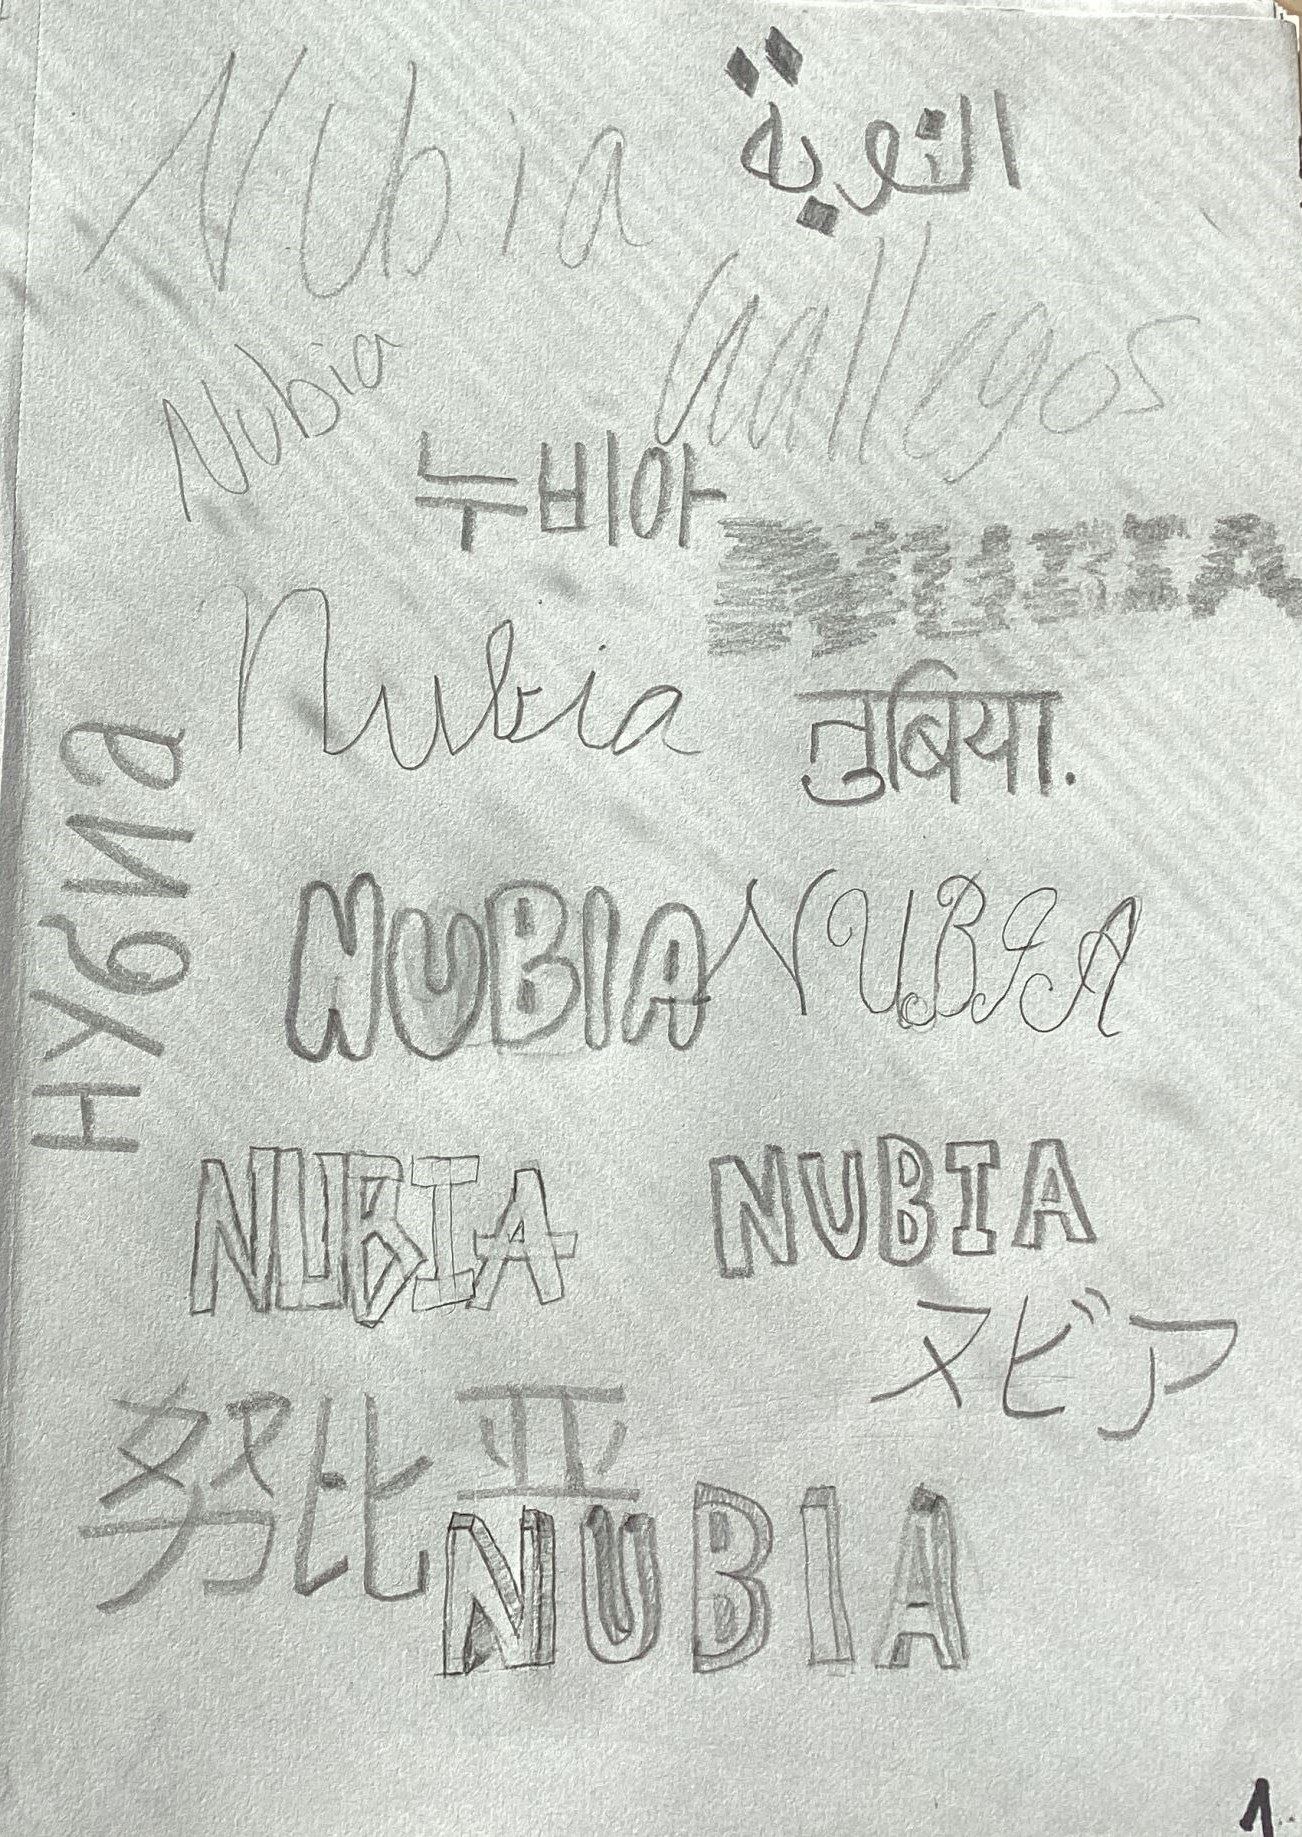 Nubia
النوبة
Gallegos
Nubia
누비아
NUBIA
Nubia
नुबिया.
нубиа
NUBIA
NUBIA
NUBIA
NUBIA
ヌビア
努比亚
NUBIA
1.